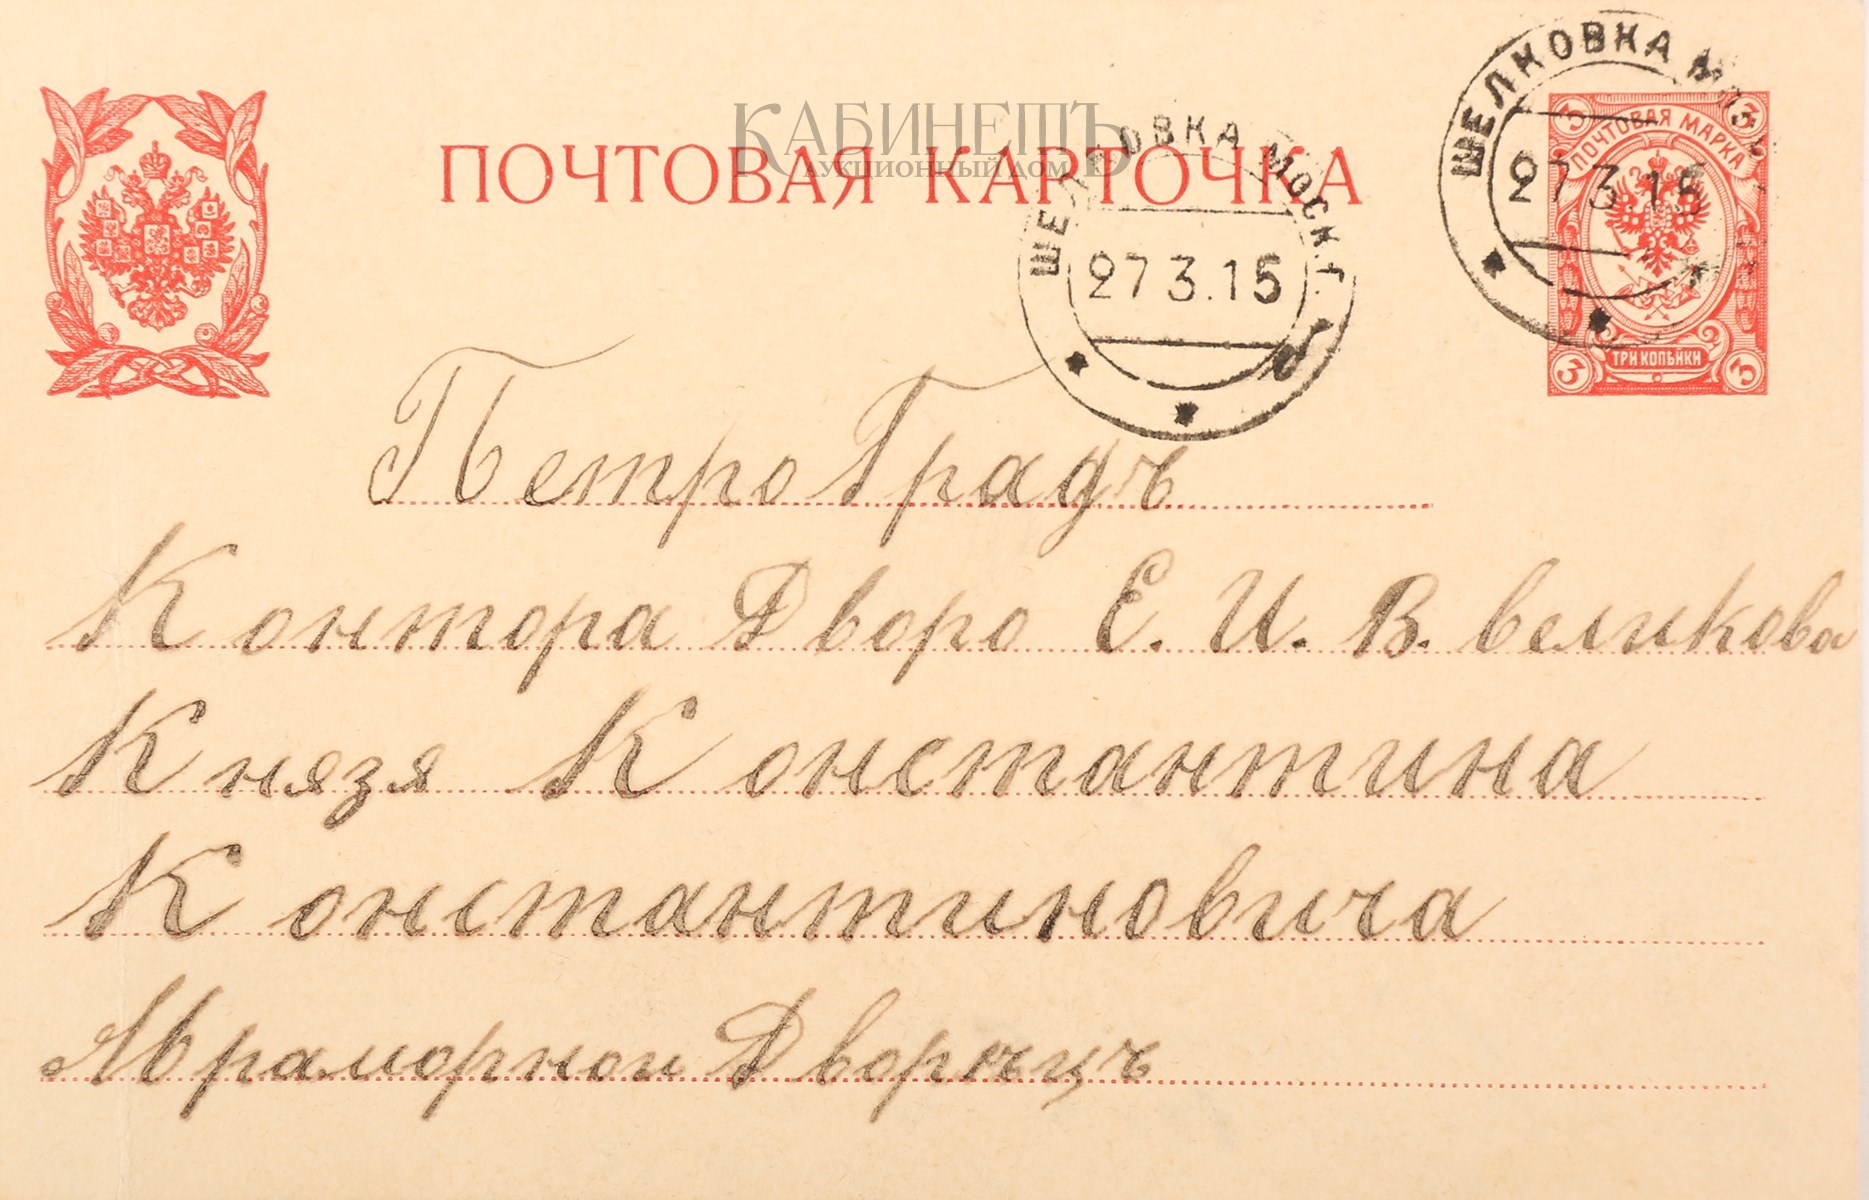 КАБИНЕТЪ
АУКЦИОННЫЙ ДОМ
ПОЧТОВАЯ КАРТОЧКА
ШЕЛКОВКА МОСК. Г.
27 3.15
ШЕЛКОВКА МОСК.
27 3.15
3 3
ПОЧТОВАЯ МАРКА
ТРИ КОПѢЙКИ
3 3
ПетроГрадъ
Контора Дворо Е. И. В. великова
Князя Константина
Константиновича
Мраморной Дворѣцъ